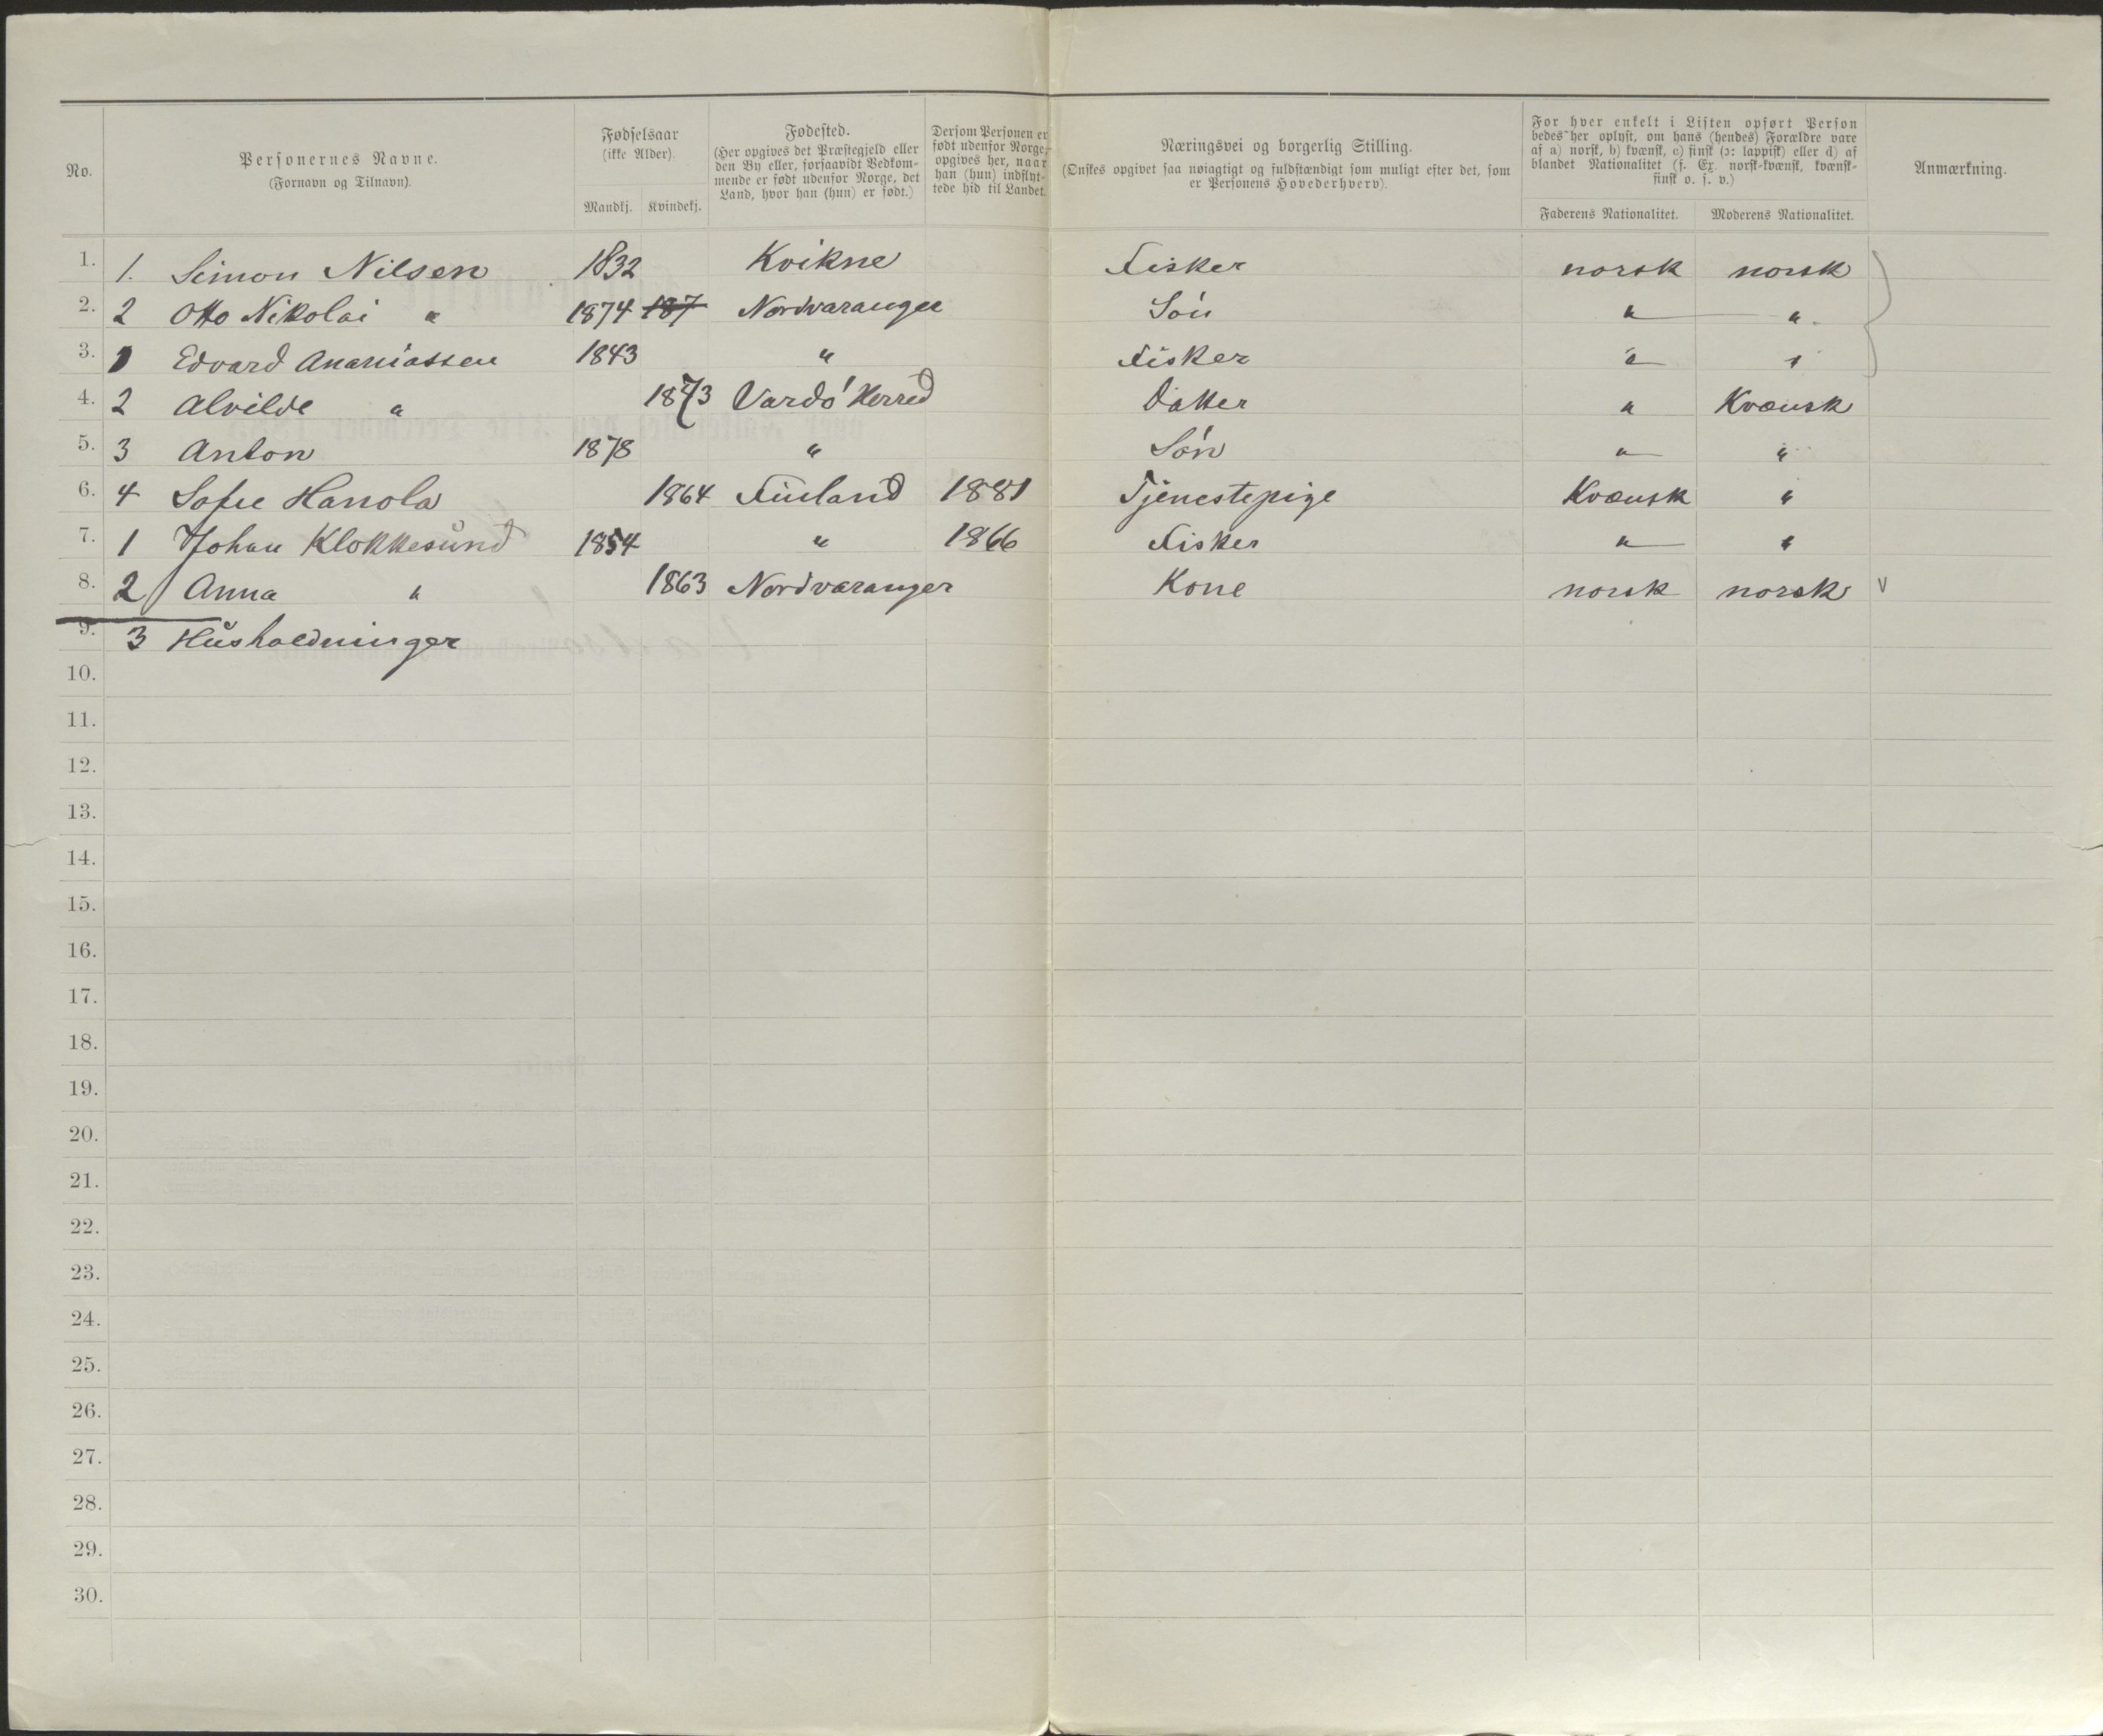 No.
Personernes Navne.
(Fornavn og Tilnavn).
Fødselsaar
(ikke Alder).
Mandkj. Kvindekj.
Fødested.
(Her opgives det Præstegjeld eller
den By eller, forsaavidt Vedkom-
mende er født udenfor Norge, det
Land, hvor han (hun) er født.)
Dersom Personen er
født udenfor Norge,
opgives her, naar
han (hun) indflyt-
tede hid til Landet.
Næringsvei og borgerlig Stilling.
(Ønskes opgivet saa nøiagtigt og fuldstændigt som muligt efter det, som
er Personens Hovederhverv).
For hver enkelt i Listen opført Person
bedes her oplyst, om hans (hendes) Forældre vare
af a) norsk, b) kvænsk, c) finsk (ɔ: lappisk) eller d) af
blandet Nationalitet (f. Ex. norsk-kvænsk, kvænsk-
finsk o. s. v.)
Faderens Nationalitet. Moderens Nationalitet.
Anmærkning.
1. 1. Simon Nilsen 1832 Kvikne Fisker norsk norsk
2. 2 Otto Nikolai " 1874 187 Nordvaranger Søn " "
3. 1 Edvard Ananiassen 1843 " Fisker " "
4. 2 Alvilde " 1873 Vardø Herred Datter " Kvænsk
5. 3 Anton 1878 " Søn " "
6. 4 Sofie Hanola 1864 Finland 1881 Tjenestepige Kvænsk "
7. 1 Johan Klokkesund 1854 " 1866 Fisker " "
8. 2 Anna " 1863 Nordvaranger Kone norsk norsk v
9. 3 Husholdninger
10.
11.
12.
13.
14.
15.
16.
17.
18.
19.
20.
21.
22.
23.
24.
25.
26.
27.
28.
29.
30.